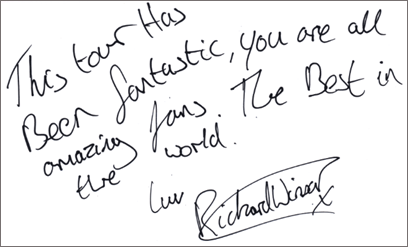 This tour Has
Been fantastic, you are all
amazing fans. The Best in
the world.
Luv Richard Winsor x